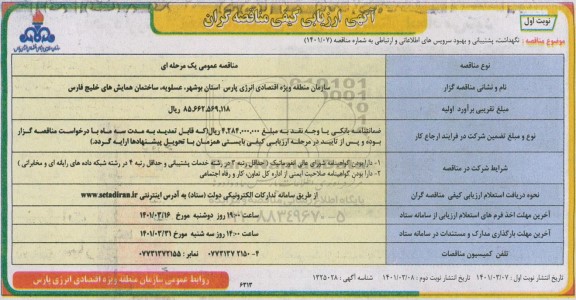 آگهی ارزیابی کیفی مناقصه گران
نوبت اول
موضوع مناقصه : نگهداشت، پشتیبانی و بهبود سرویس های اطلاعاتی و ارتباطی به شماره مناقصه (۱۴۰۱/۰۷)
نوع مناقصه
مناقصه عمومی یک مرحله ای
نام و نشانی مناقصه گزار
سازمان منطقه ویژه اقتصادی انرژی پارس استان بوشهر، عسلویه، ساختمان همایش های خلیج فارس
مبلغ تقریبی برآورد اولیه
۸۵,۶۶۲,۵۶۹,۱۱۸ ریال
نوع و مبلغ تضمین شرکت در فرایند ارجاع کار
ضمانتنامه بانکی یا وجه نقد به مبلغ ۴,۲۸۴,۰۰۰,۰۰۰ ریال(که قابل تمدید به مدت سه ماه با درخواست مناقصه گزار
بوده و پس از تایید در مرحله ارزیابی کیفی بایستی همزمان با تحویل پیشنهادها ارایه گردد.)
شرایط شرکت در مناقصه
۱- دارا بودن گواهینامه شورای عالی انفورماتیک ( حداقل رتبه ۳ در رشته خدمات پشتیبانی و حداقل رتبه ۴ در رشته شبکه داده های رایانه ای و مخابراتی )
۲- دارا بودن گواهینامه صلاحیت ایمنی از اداره کل تعاون کار و رفاه اجتماعی
نحوه دریافت استعلام ارزیابی کیفی مناقصه گران
از طریق سامانه تدارکات الکترونیکی دولت (ستاد) به آدرس اینترنتی www.setadiran.ir
آخرین مهلت اخذ فرم های استعلام ارزیابی از سامانه ستاد
ساعت ۱۹:۰۰ روز دوشنبه مورخ ۱۴۰۱/۰۳/۱۶
آخرین مهلت بارگذاری مدارک و مستندات در سامانه ستاد
ساعت ۱۴:۰۰ روز سه شنبه مورخ ۱۴۰۱/۰۳/۳۱
تلفن کمیسیون مناقصات
۰۷۷۳۱۳۷ ۲۱۵۰-۴ نمابر : ۰۷۷۳۱۳۷۲۱۵۵
تاریخ انتشار نوبت اول : ۱۴۰۱/۰۳/۰۷ تاریخ انتشار نوبت دوم : ۱۴۰۱/۰۳/۰۸ شناسه آگهی : ۱۳۲۵۰۲۸
۶۳۱۳
روابط عمومی سازمان منطقه ویژه اقتصادی انرژی پارس